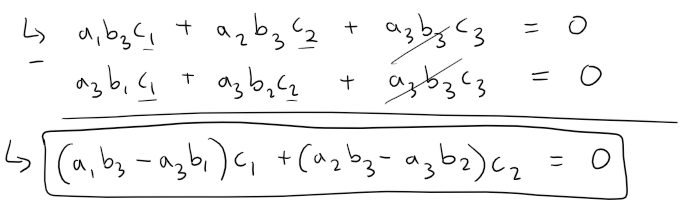 ↳ a₁b₃c₁ + a₂b₃c₂ + a₃b₃c₃ = 0
– a₃b₁c₁ + a₃b₂c₂ + a₃b₃c₃ = 0
↳ (a₁b₃ – a₃b₁)c₁ + (a₂b₃ – a₃b₂)c₂ = 0